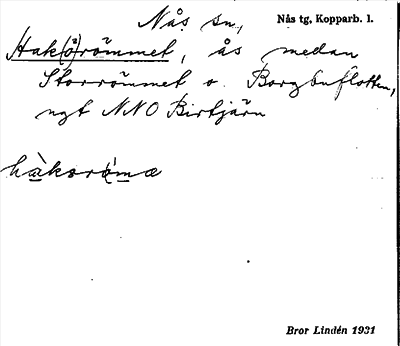 Nås sn, Nås tg, Kopparb. l.
Hak(ö)römmet, ås medan
Storrömmet o. Borgbuflotten,
ngt NNO Birtjärn
håksrömæ
Bror Lindén 1931